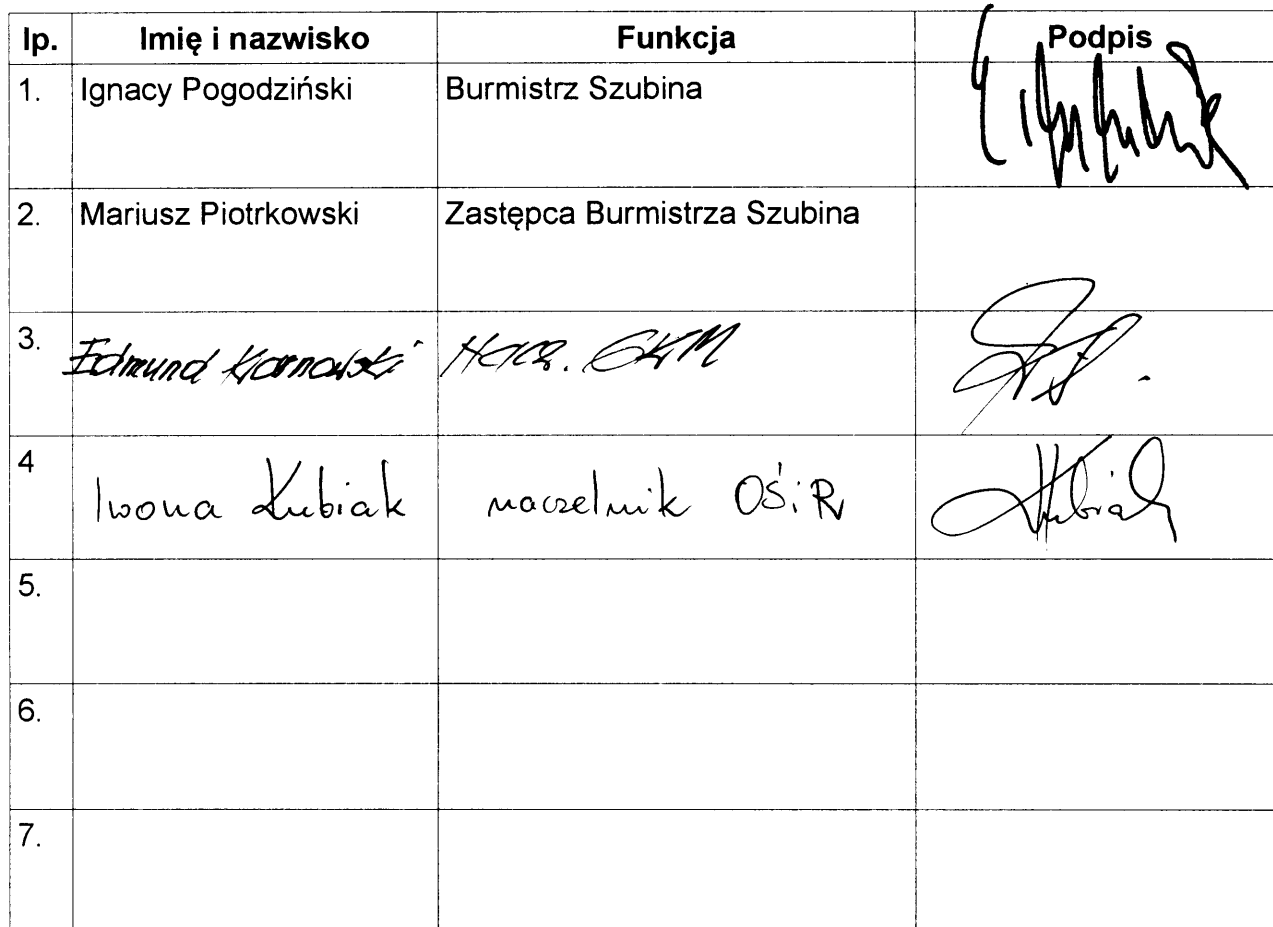 lp. Imię i nazwisko Funkcja Podpis
1. Ignacy Pogodziński Burmistrz Szubina
2. Mariusz Piotrkowski Zastępca Burmistrza Szubina
3. Edmund GKM
4 Iwona Kubiak naczelnik OŚiR Kubiak
5.
6.
7.